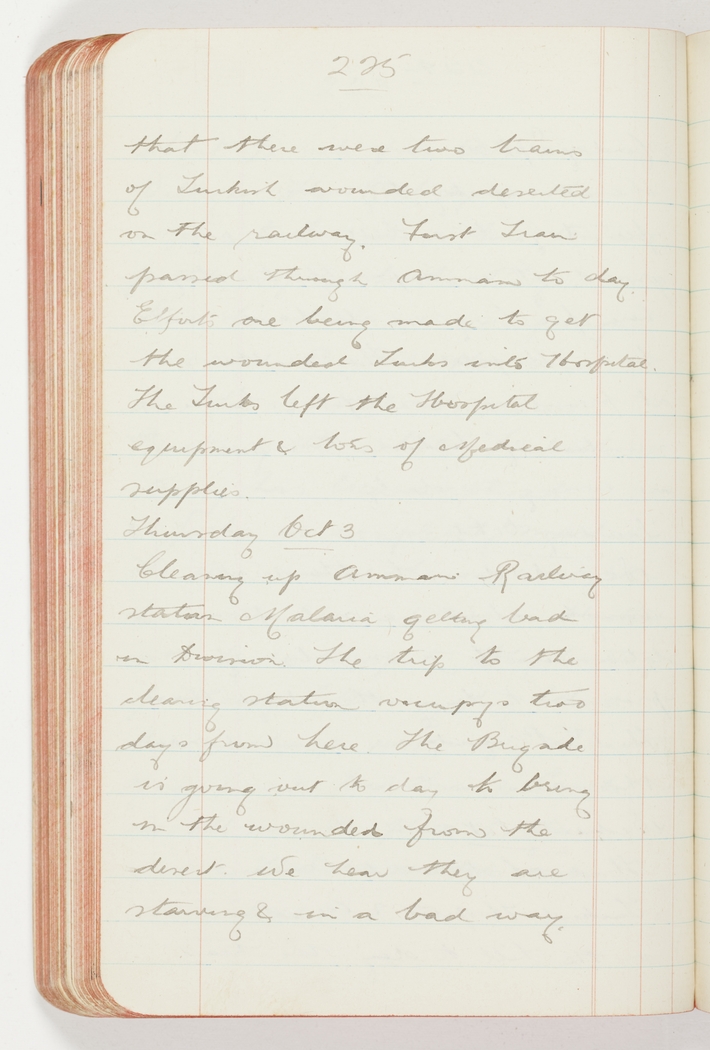 225
that there were two trains
of Turkish wounded deserted
on the railway. First Train
passed through Amman to day.
Efforts are being made to get
the wounded Turks into Hospital.
The Turks left the Hospital
equipment & tons of Medical
supplies.
Thursday Oct 3
Clearing up Amman Railway
station Malaria getting bad
in Division. The trip to the
clearing station occupys two
days from here. The Brigade
is going out to day to bring
in the wounded from the
desert. We hear they are
starving & in a bad way.